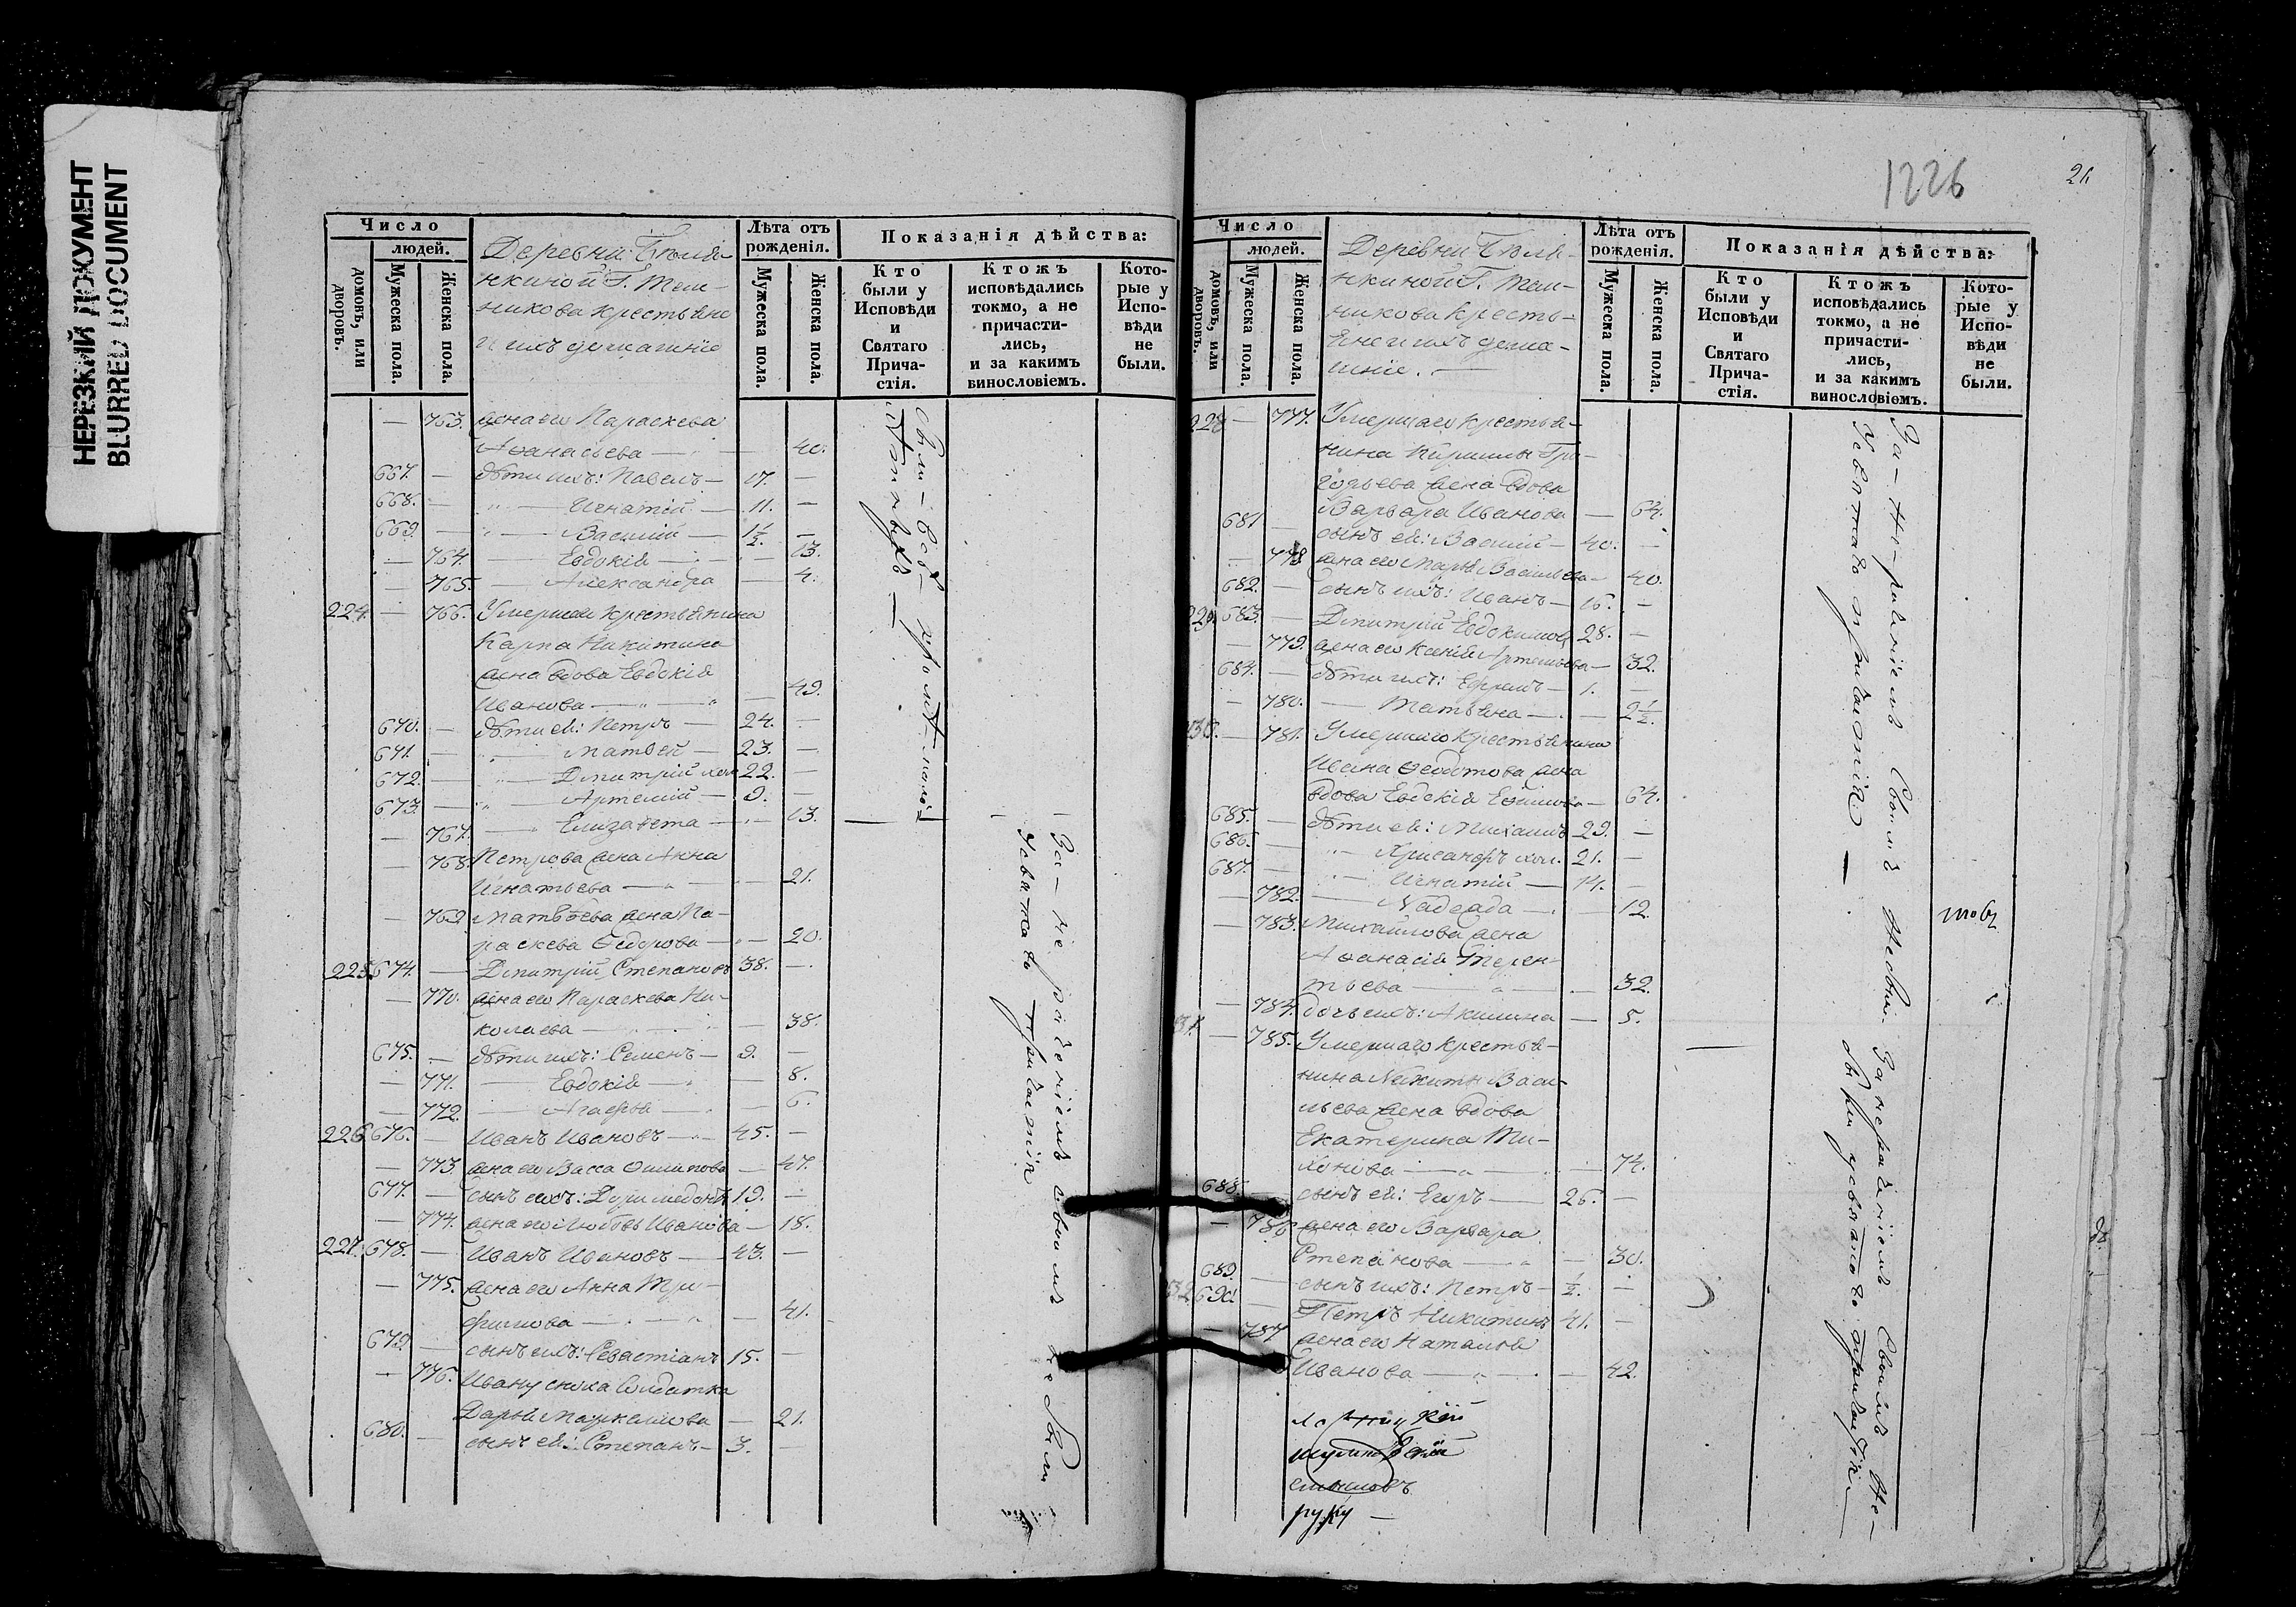 НЕРЕЗКИЙ ДОКУМЕНТ
BLURRED DOCUMENT
Число
людей.
домовъ, или дворовъ.
Мужеска пола.
Женска пола.
Деревни Беля-
нкиной Г.
никова крестьяне
и ихъ домашніе
Лѣта отъ рожденія.
Мужеска пола.
Женска пола.
Показанія дѣйства:
Кто были у Исповѣди и Святаго Прича- стія.
Ктожъ исповѣдались токмо, а не причасти- лись, и за какимъ винословіемъ.
Кото- рые у Испо- вѣди не были.
— 763. жена его Параскева
Аѳанасьева — 40.
667. — дѣти ихъ: Павелъ — 17. —
668. — Игнатій — 11. —
669. — Василій — 1½. —
— 764. — Евдокія — 13.
— 765. — Александра — 4.
224. — 766. Умершаго крестьянина
Карпа Никитина
жена вдова Евдокія
Иванова — 49.
670. — дѣти ея: Петръ — 24. —
671. — Матвей — 23. —
672. — Дмитрій хол. 22. —
673. — Артемій — 9. —
— 767. — Елизавета — 13.
— 768. Петрова жена Анна
Игнатьева — 21.
— 769. Матвѣева жена Па-
раскева Ѳедорова — 20.
225. 674. — Дмитрій Степановъ 38. —
— 770. жена его Параскева Ни-
колаева — 38.
675. — дѣти ихъ: Семенъ — 9. —
— 771. — Евдокія — 8.
— 772. — Агафья — 6.
226. 676. — Иванъ Ивановъ — 45. —
— 773. жена его Васса Филипова — 47.
677. — сынъ ихъ: Доримедонтъ 19. —
— 774. жена его Любовь Иванова — 18.
227. 678. — Иванъ Ивановъ — 43. —
— 775. жена его Анна Три-
фонова — 41.
679. — сынъ ихъ: Севастіанъ 15. —
— 776. Ивану сноха солдатка
Дарья Маркелова — 21.
680. — сынъ ея: Степанъ — 3. —
Были — всѣ —
За — не раченіемъ своимъ не были
у святаго причастія
1226
Число
людей.
домовъ, или дворовъ.
Мужеска пола.
Женска пола.
Деревни Беля-
нкиной Г.
никова кресть-
яне и ихъ дома-
шніе. —
Лѣта отъ рожденія.
Мужеска пола.
Женска пола.
Показанія дѣйства:
Кто были у Исповѣди и Святаго Прича- стія.
Ктожъ исповѣдались токмо, а не причасти- лись, и за какимъ винословіемъ.
Кото- рые у Испо- вѣди не были.
228 — 777. Умершаго крестья-
нина Кирилы Гри-
горьева жена вдова
Варвара Иванова — 64.
681 — сынъ ея: Василій — 40. —
— 778 жена его Марья Васильева — 40.
682. — сынъ ихъ: Иванъ — 16. —
229. 683. — Дмитрій Евдокимовъ 28. —
— 779. жена его Ксенія Артемьева — 32.
684. — дѣти ихъ: Ефремъ — 1. —
— 780. — Татьяна — 2½.
230. — 781. Умершаго крестьянина
Ивана Ѳеодотова жена
вдова Евдокія Ефимова — 64.
685. — дѣти ея: Михаилъ 29. —
686. — хол. 21. —
687. — Игнатій — 14. —
— 782. — Надежда — 12.
— 783. Михайлова жена
Аѳанасія Терен-
тьева — 32.
— 784. дочь ихъ: Акилина — 5.
31. — 785. Умершаго крестья-
нина Никиты Васи-
льева жена вдова
Екатерина Ти-
хонова — 74.
688. — сынъ ея: Егоръ — 26. —
— 786 жена его Варвара
Степанова — 30.
689. — сынъ ихъ: Петръ — ½. —
32 690. — Петръ Никитинъ 41. —
— 787 жена его Наталья
Иванова — 42.
руку —
За — не — раченіемъ своимъ не были
у святаго причастія —
За нераченіемъ своимъ не —
были у святаго причастія —